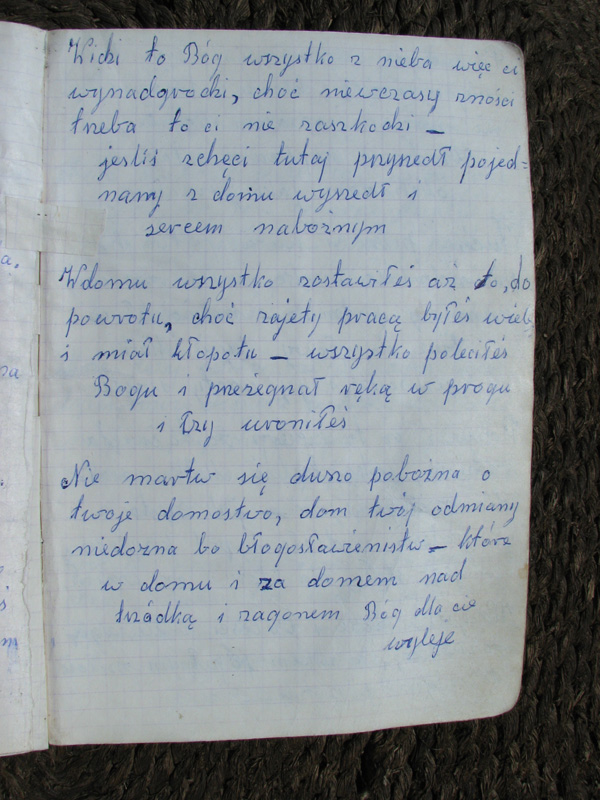 Widzi to Bóg wszystko z nieba więc ci
wynadgrodzi, choć niewczasy zności
trzeba to ci nie zaszkodzi –
jesliś zchęci tutaj przyszedł pojed=
nany z domu wyszedł i
sercem nabożnym
Wdomu wszystko zostawiłeś aż to, do
powrotu, choć zajęty pracą byłeś wiele
i miał kłopotu – wszystko poleciłeś
Bogu i przeżegnał ręką w progu
i łzy uroniłeś
Nie martw się duszo pobożna o
twoje domostwo, dom twój odmiany
niedozna bo błogosławienistw – które
w domu i za domem nad
trzódką i zagonem Bóg dla cie
wyleje
a.
za
s
m